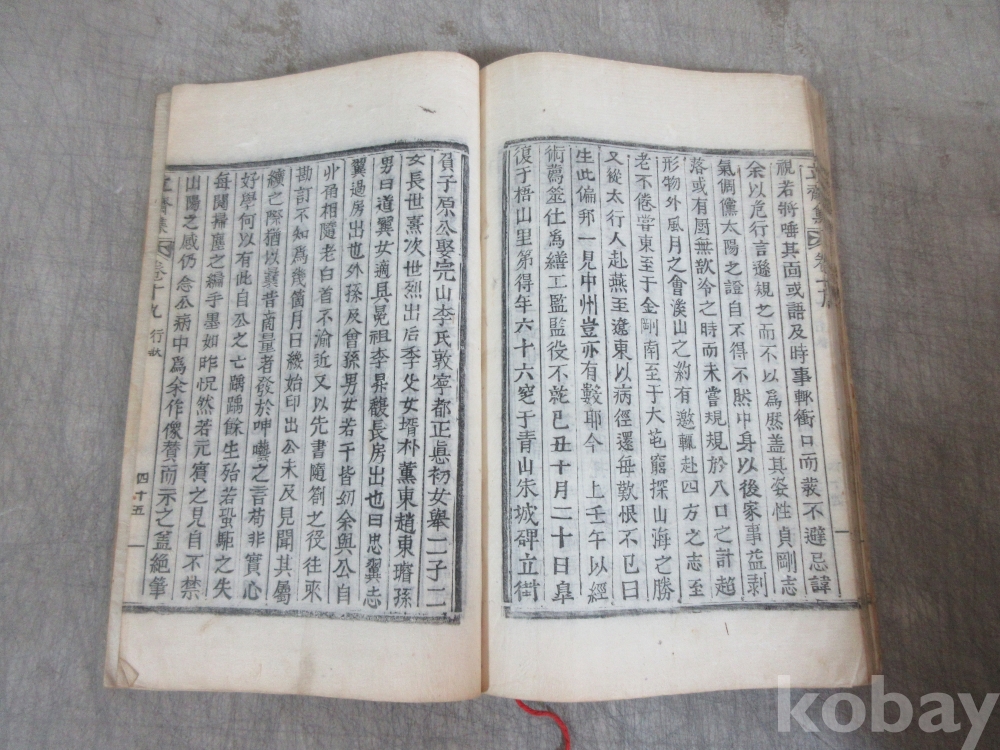 視若將睡其面或語及時事輒衝口而發不避忌諱
余以危行言遜規之而不以爲然盖其姿性貞剛志
氣倜儻太陽之證自不得不然中身以後家事益剥
落或有厨無歆冷之時而未嘗規規於八口之計超
形物外風月之會溪山之約有邀輒赴四方之志至
老不倦嘗東至于金剛南至于大芚窮探山海之勝
又從太行人赴燕至遼東以病徑還每歎恨不已曰
生此偏邦一見中州豈亦有數耶今 上壬午以經
術薦筮仕爲繕工監監役不就己丑十月二十日皐
復于梧山里第得年六十六窆于青山朱城碑立街
負子原公娶完山李氏敦寧都正眞初女舉二子二
女長世熹次世烈出后季父女壻朴薰東趙東璿孫
男曰道翼女適具晃祖李昇馥長房出也曰忠翼志
翼過房出也外孫及曾孫男女若干皆幼余與公自
丱角相隨老白首不渝近又以先書隨劄之役往來
勘訂不知爲幾箇月日纔始印出公未及見聞其屬
纊之際猶以曩昔商量者發於呻囈之言苟非實心
好學何以有此自公之亡踽踽餘生殆若蛩駏之失
每閱掃塵之編手墨如昨怳然若元賓之見自不禁
出陽之感仍念公病中爲余作像賛而示之盖絶筆
立齋集 卷之十九 行狀 四十五